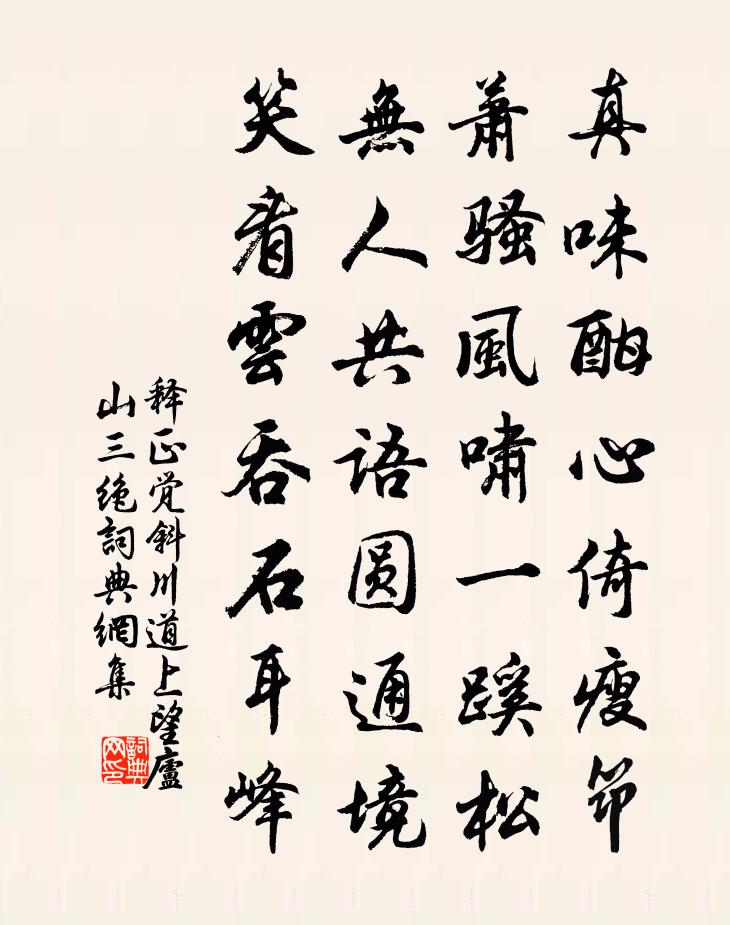 真味酣心倚瘦筇
蕭騷風嘯一蹊松
無人共語圓通境
笑看雲吞石耳峰
释正觉斜川道上望廬
山三绝詞典網集
詞典
网印